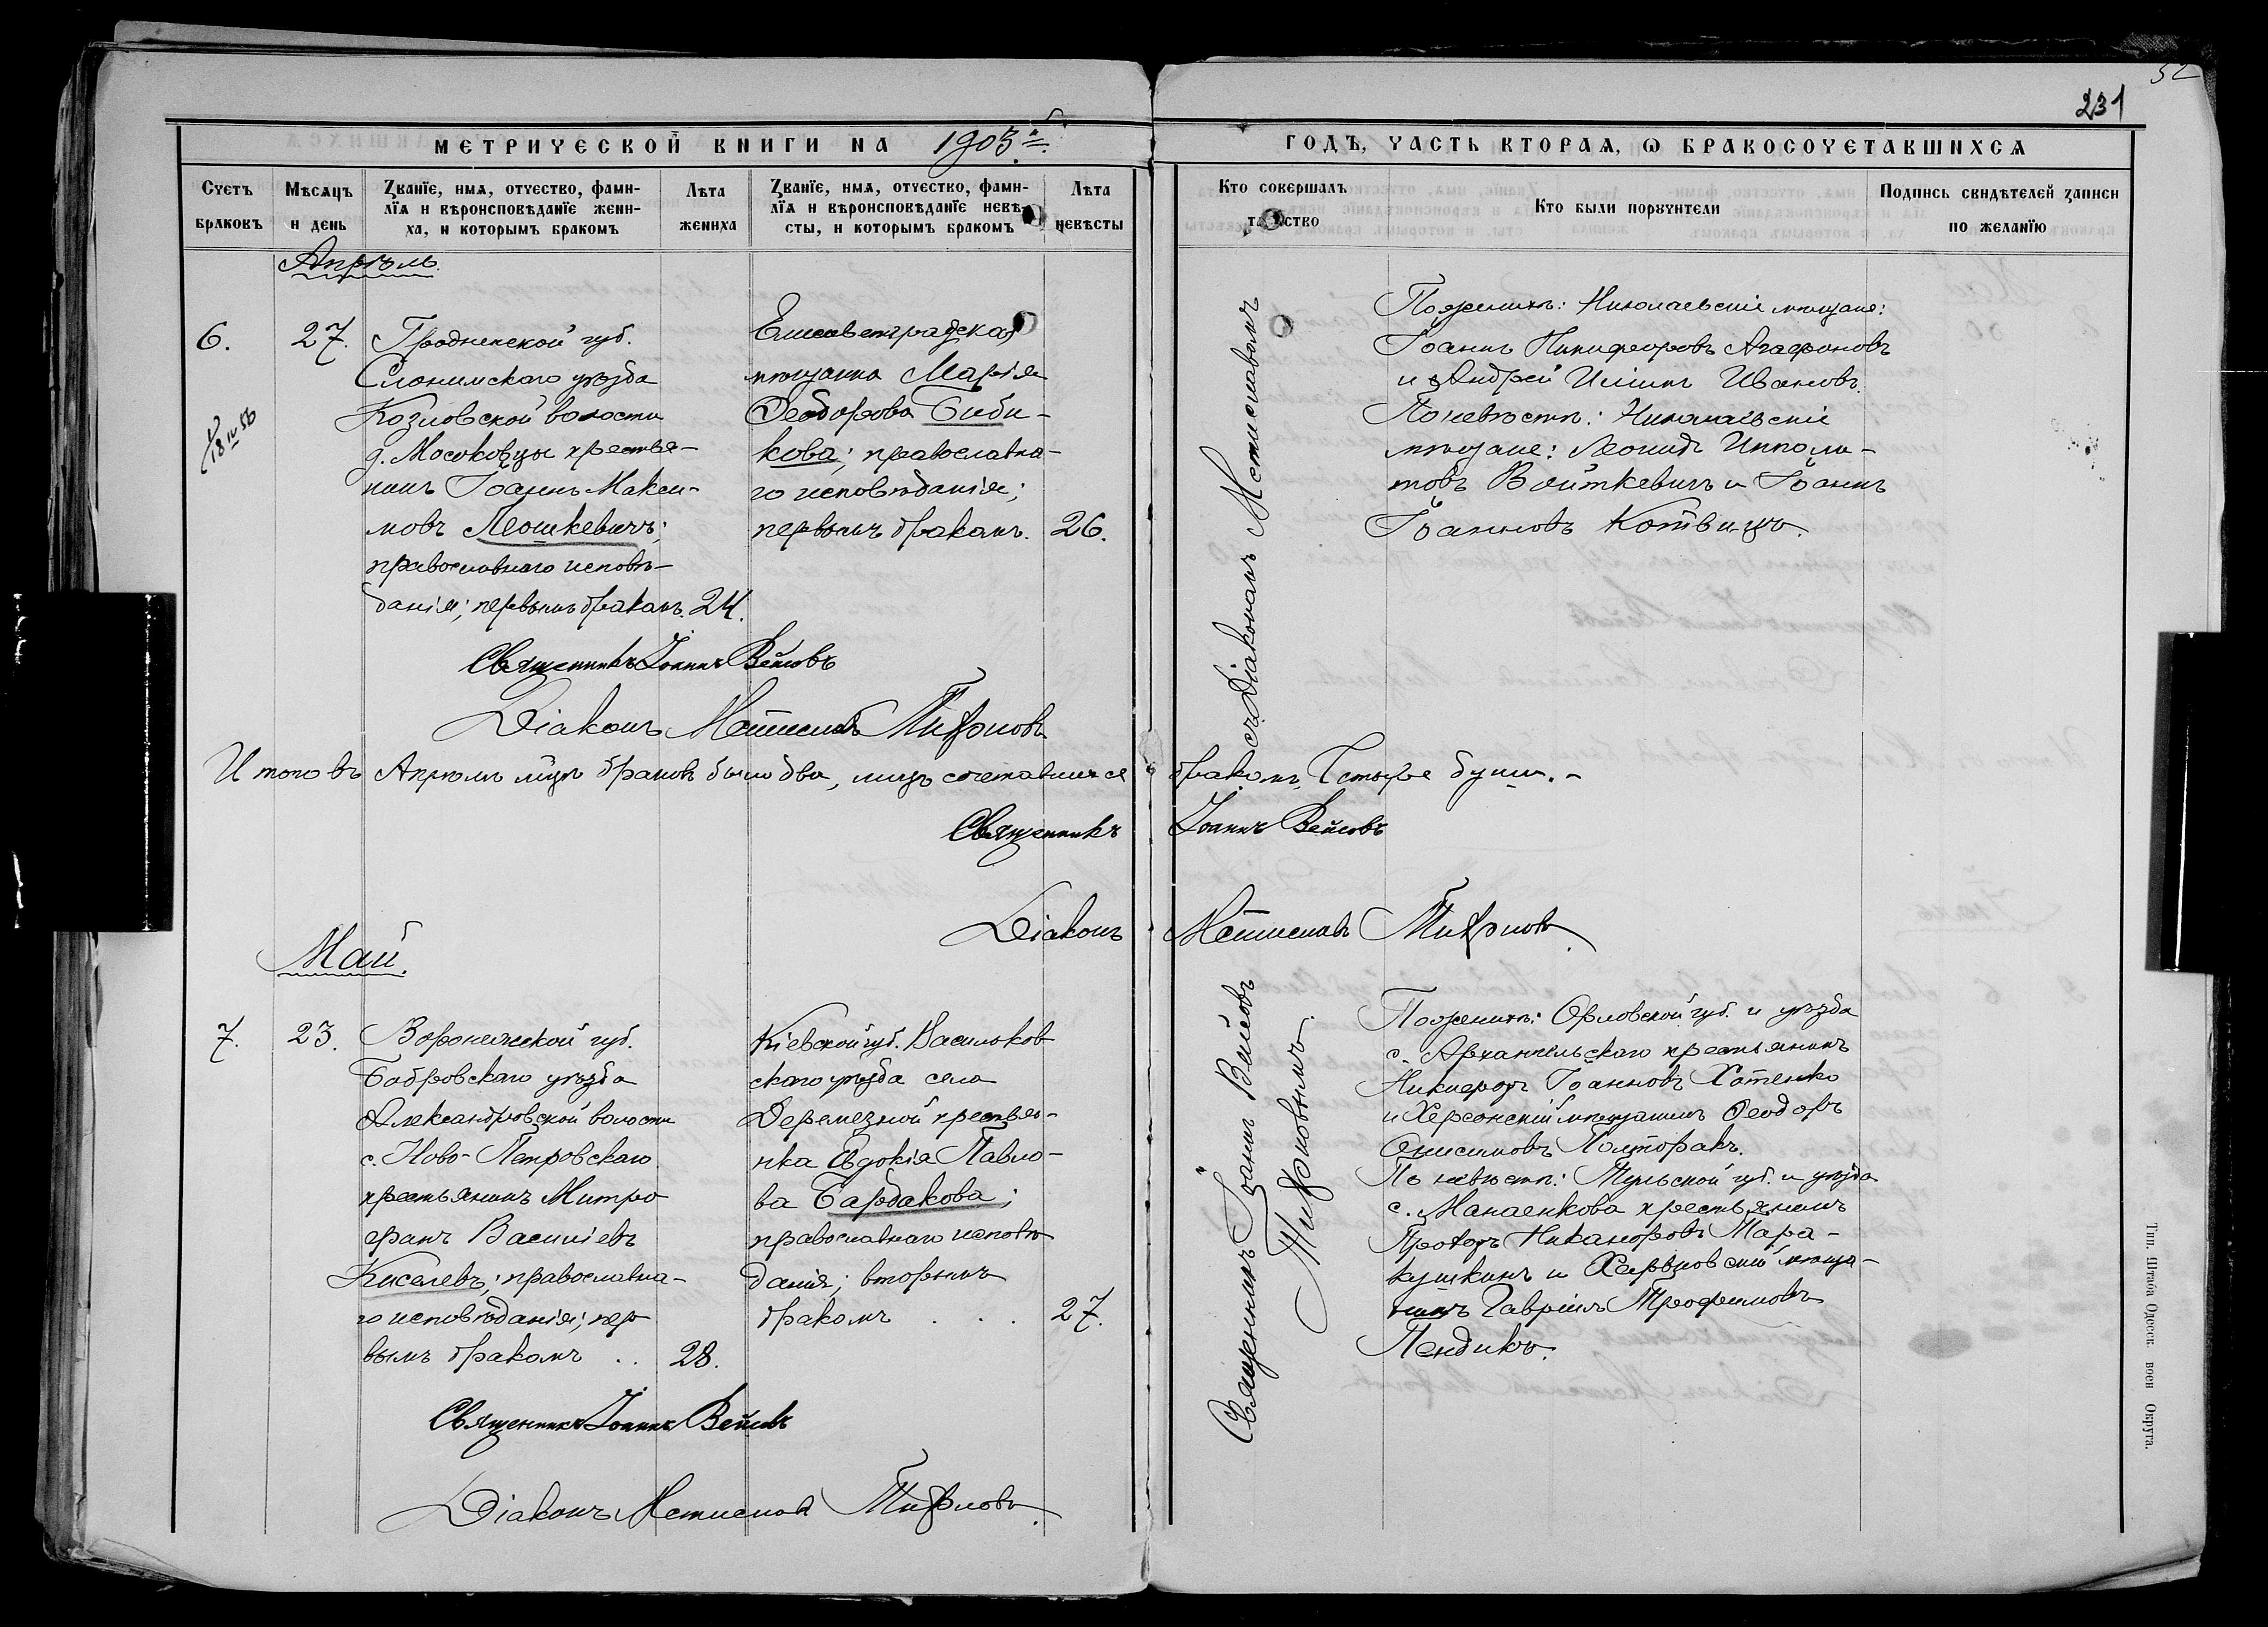 52
231
МЕТРИЧЕСКОЙ КНИГИ НА 1903й г.
ГОДЪ, ЧАСТЬ ВТОРАЯ, Ѡ БРАКОСОЧЕТАВШИХСЯ
Счетъ браковъ
Мѣсяцъ и день
Званіе, имя, отчество, фами-
лія и вѣроисповѣданіе жени-
ха, и которымъ бракомъ
Лѣта жениха
Званіе, имя, отчество, фами-
лія и вѣроисповѣданіе невѣ-
сты, и которымъ бракомъ
Лѣта невѣсты
Кто совершалъ
таинство
Кто были поручители
Подпись свидѣтелей записи
по желанію
Апрѣль.
6.
27.
Гродненской губ.
Слонимскаго уѣзда
Козловской волости
д. Мосоковцы крестья-
нинъ Іоаннъ Макси-
мовъ Леошкевичъ;
православнаго исповѣ-
данія; первымъ бракомъ. 24.
Елисаветградская
мѣщанка Марія
Ѳеодорова Биби-
кова; православна-
го исповѣданія;
первымъ бракомъ. 26.
съ Діакономъ Мстиславомъ
По женихѣ: Николаевскіе мѣщане:
Іоаннъ Никифоровъ Агафоновъ
и Андрей Иліинъ Ивановъ.
По невѣстѣ: Николаевскіе
мѣщане: Леонидъ Ипполи-
товъ Войткевичъ и Іоаннъ
Іоанновъ Котвицъ.
Священникъ Іоаннъ Вейсовъ
Діаконъ Мстиславъ
Итого въ Апрѣлѣ мѣцѣ браковъ было два, лицъ сочетавшихся бракомъ четыре души.
Священникъ Іоаннъ Вейсовъ
Діаконъ Мстиславъ
Май.
7.
23.
Воронежской губ.
Бобровскаго уѣзда
Александровской волости
с. Ново-Петровскаго
крестьянинъ Митро
фанъ Василіевъ
Киселевъ; православна-
го исповѣданія; пер
вымъ бракомъ . . 28.
Кіевской губ. Васильков
скаго уѣзда села
Деремезной крестьян-
ка Евдокія Павло-
ва Бардакова;
православнаго исповѣ
данія; вторымъ
бракомъ . . . 27.
Священникъ Іоаннъ Вейсовъ
По женихѣ: Орловской губ. и уѣзда
с. Архангельскаго крестьянинъ
Никифоръ Іоанновъ Хатенко
и Херсонскій мѣщанинъ Ѳеодоръ
Онисимовъ Полторакъ.
По невѣстѣ: Тульской губ. и уѣзда
с. Манаенкова крестьянинъ
Проторъ Никаноровъ Тара-
кушкинъ и Харьковскій мѣща-
нинъ Гавріилъ Трофимовъ
Пендикъ.
Священникъ Іоаннъ Вейсовъ
Діаконъ Мстиславъ
Тип. Штаба Одесск. воен Округа.